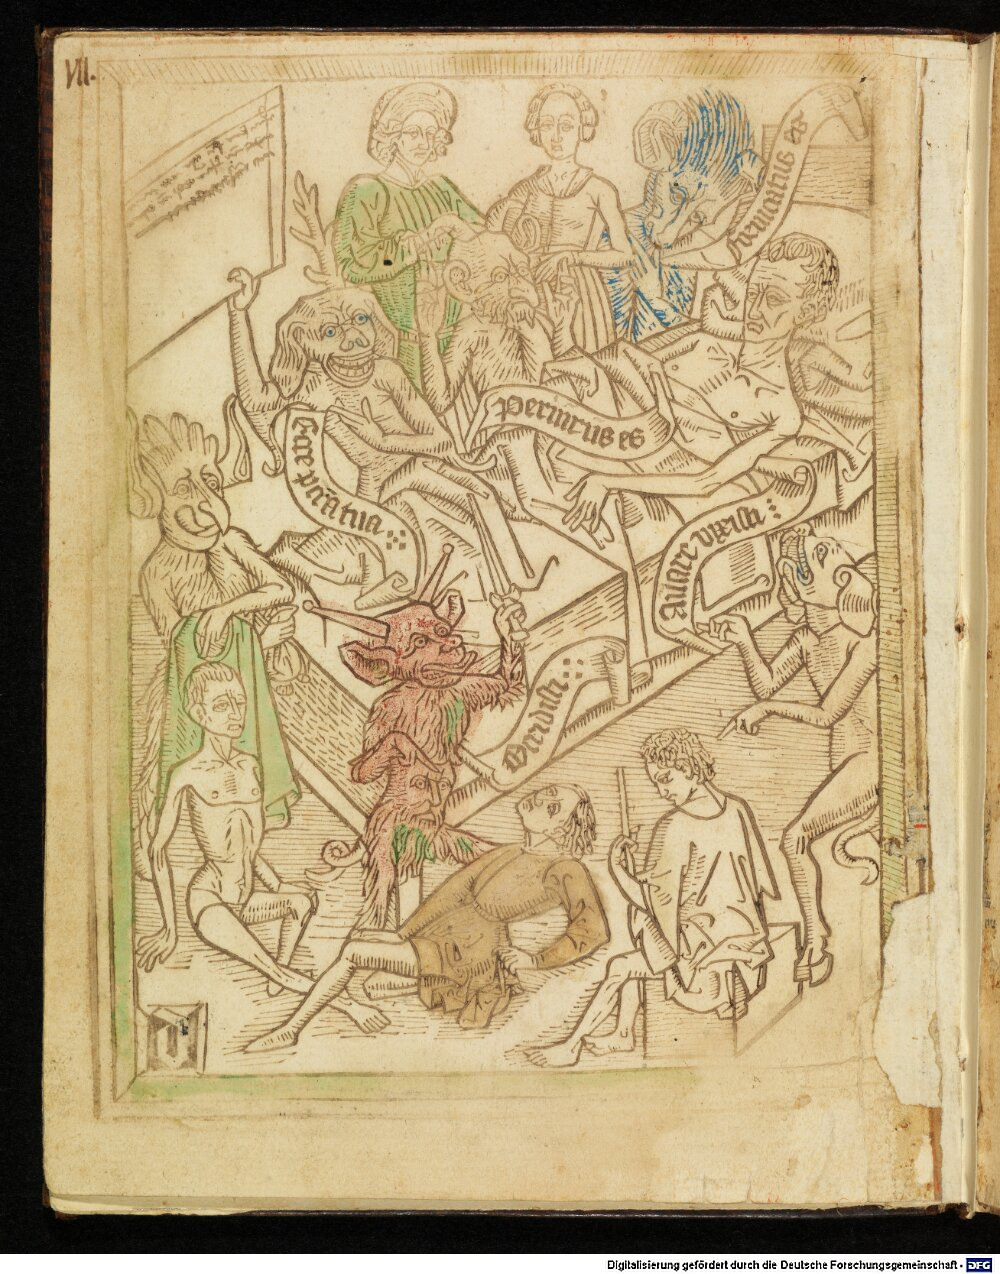 VII.
fornicatus es
Periurus es
Ecce pccata tua
Auare vixisti
Occidisti
Digitalisierung gefördert durch die Deutsche Forschungsgemeinschaft - DFG